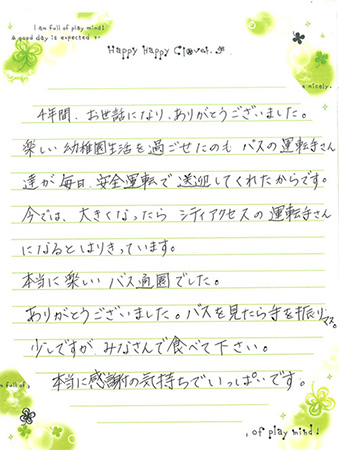 I am full of play mind!
a good day is expected
Happy Happy Clover.
nicely.
4年間、お世話になり、ありがとうございました。
楽しい幼稚園生活を過ごせたのも バスの運転手さん
達が毎日、安全運転で送迎してくれたからです。
今では、大きくなったら シティアクセスの運転手さん
になるとはりきっています。
本当に楽しい バス通園でした。
ありがとうございました。バスを見たら手を振ります。
少しですが みなさんで食べて下さい。
本当に感謝の気持ちでいっぱいです。
am full of
of play mind!